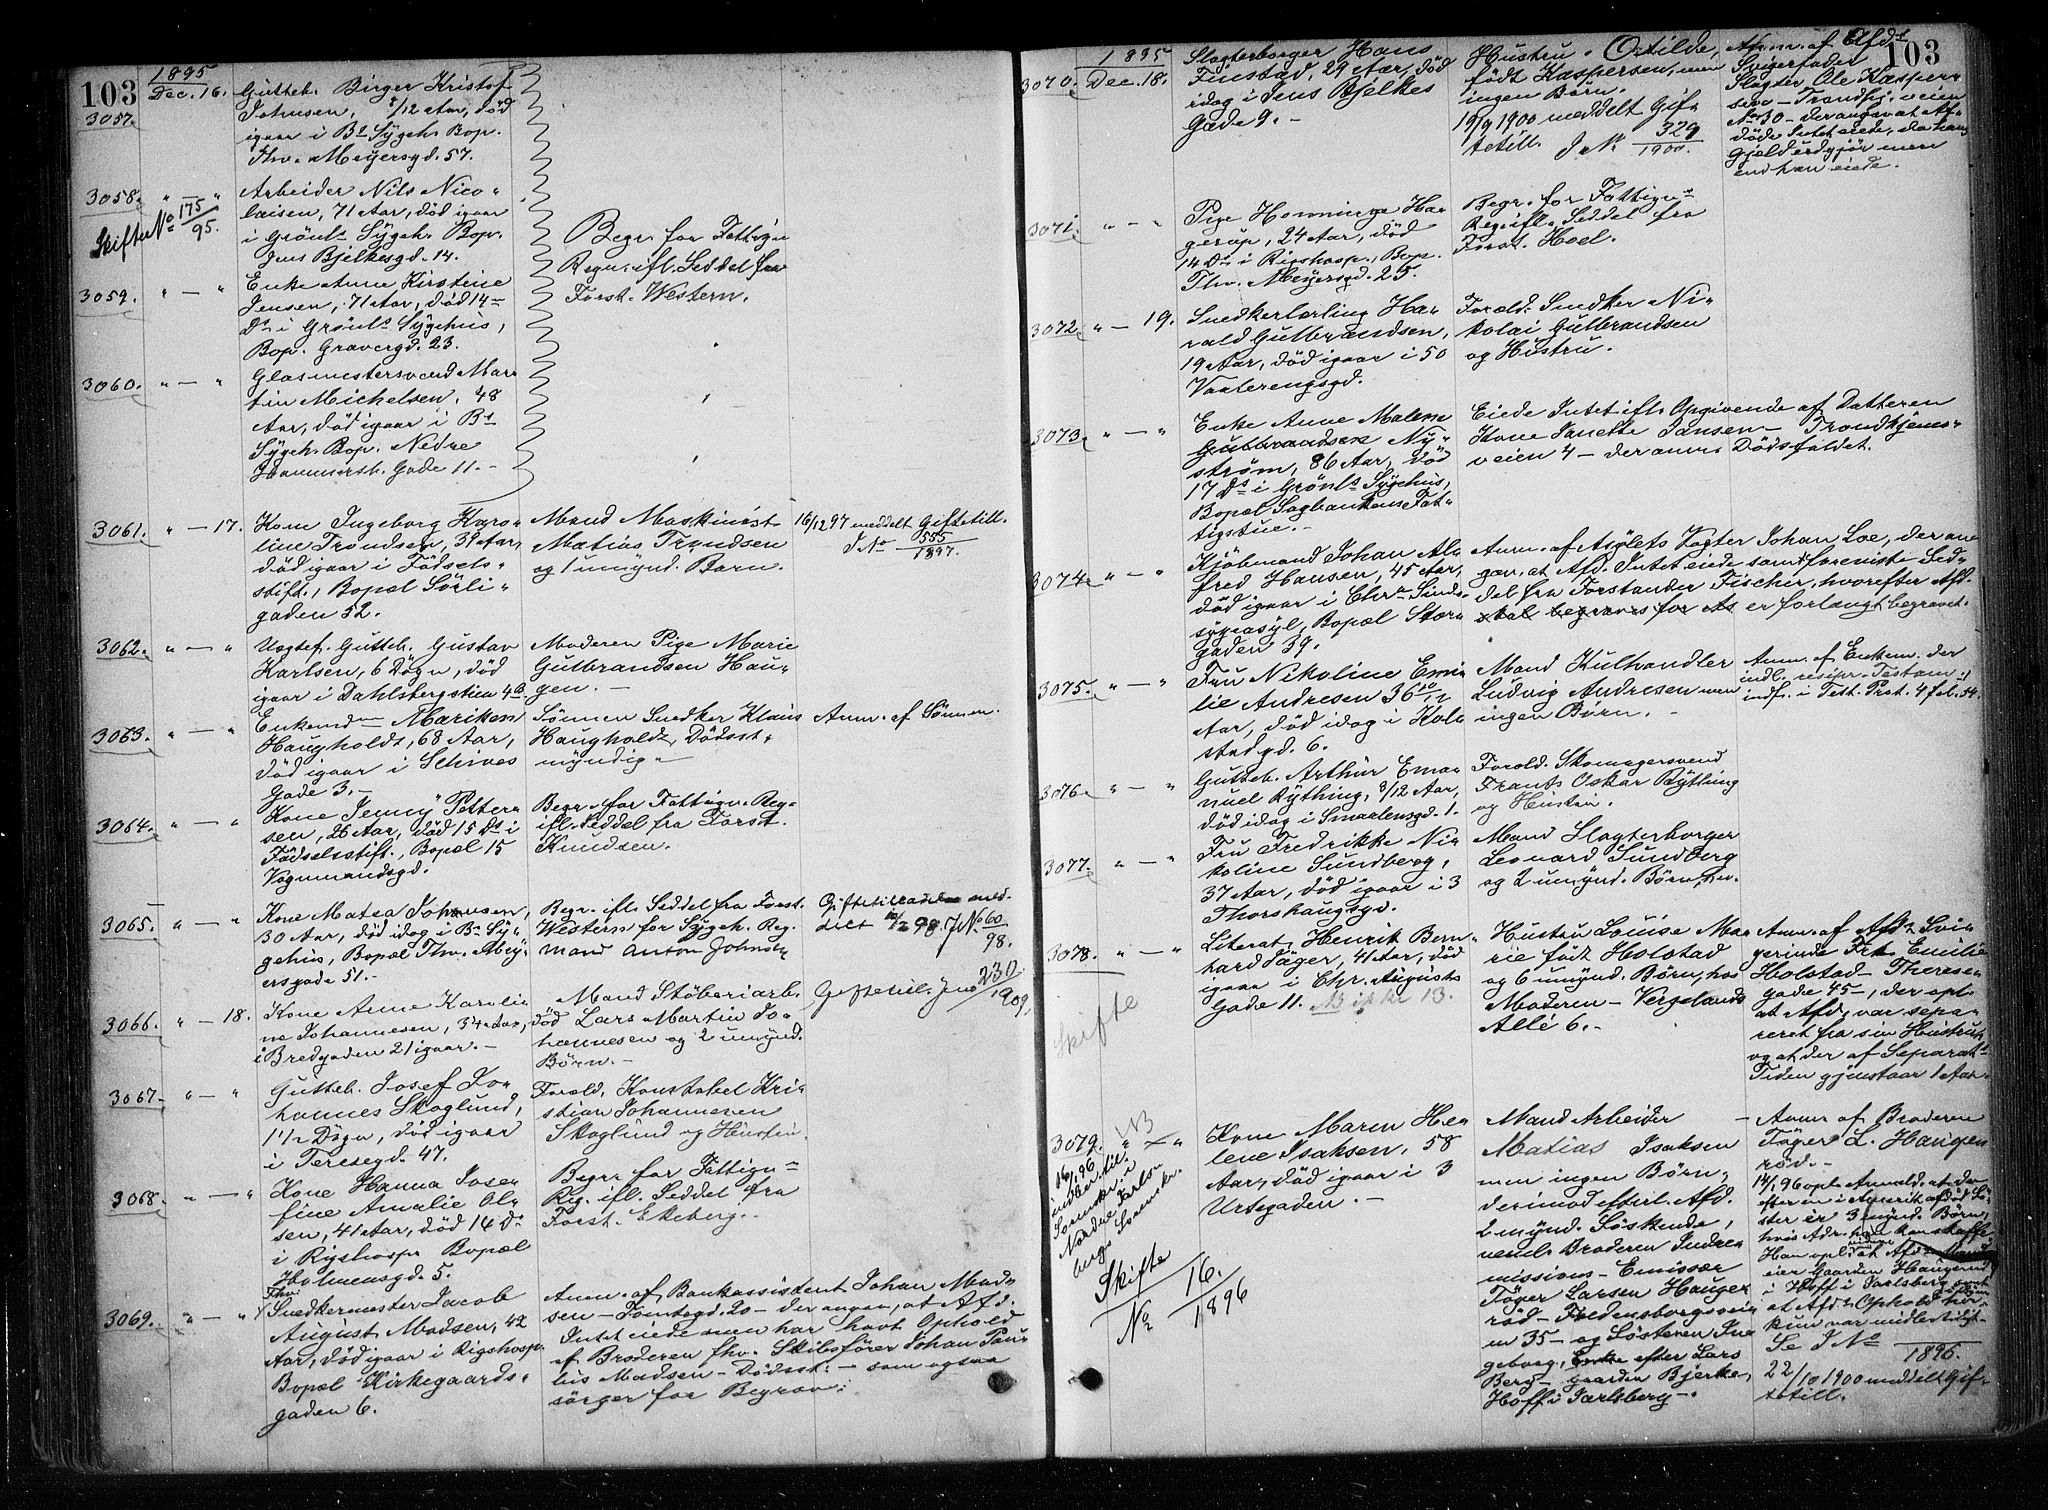 103
1895
Dec. 16.
3057.
Gutteb. Birger Kristof
Johnsen, 8/12 Aar, død
igaar i Bs Sygeh. Bop.
Thv. Meyersgd. 57.
3058. " — "
Skifte No 175/95.
Arbeider Nils Nico-
laisen, 71 Aar, død igaar
i Grönls Sygeh. Bop.
Jens Bjelkesgd. 14.
Begr. for Fattign
Regn. ifl. Seddel fra
Forst. Western.
3059. " — "
Enke Anne Kirstine
Jensen, 71 Aar, død 14
Ds i Grönls Sygehus,
Bop. Gravergd. 23.
3060. " — "
Glasmestersvend Mar-
tin Michelsen, 48
Aar, død igaar i Bs
Sygeh. Bop. Nedre
Hammersb. Gade 11. -
3061. " — 17.
Kone Ingeborg Karo-
line Trondsen, 39 Aar,
død igaar i Födsels-
stift., Bopæl Sörli-
gaden 52.
Mand Maskinist
Matias Trondsen
og 1 umynd. Barn.
16/12 97 meddelt Giftetill.
J No 555/1897.
3062. " — "
Uegtef. Gutteb. Gustav
Karlsen, 6 Dögn, død
igaar i Dahlsbergstien 4b.
Moderen Pige Marie
Gulbrandsen Hau-
gen. -
3063. " — "
Enkemdm Mariken
Haugholdt, 68 Aar,
död igaar i Schives
Gade 3. -
Sönnen Snedker Klaus
Haugholdt, Dödsst.
myndig.
Anm. af Sönnen.
3064. " — "
Kone Jenny Petter-
sen, 26 Aar, död 15 Ds i
Födselsstift., Bopæl 15
Vognmandsgd.
Begr. for Fattign. Reg.
ifl. Seddel fra Forst.
Knudsen.
3065. " — "
Kone Matea Johnsen,
30 Aar, död idag i Bs Sy-
gehus, Bopæl Thv. Mey-
ersgade 51. -
Begr. ifl. Seddel fra Forst.
Western for Sygeh. Reg.
Mand Anton Johnsen
Giftetilladelse med-
delt 10/2 98. J No 60/98.
3066. " — 18.
Kone Anne Karoli-
ne Johannesen, 34 Aar,
i Bredgaden 21 igaar. -
Mand Stöberiarb.
död Lars Martin Jo-
hannesen og 2 umynd.
Börn. -
Giftetil. Jno 230/1909.
3067. " — "
Gutteb. Josef Jo-
hannes Skoglund,
1 1/2 Dögn, död igaar
i Teresegd. 47.
Forold. Konstabel Kri-
stian Johannesen
Skoglund og Hustru.
3068. " — "
Kone Hanna Jose-
fine Amalie Ol-
sen, 41 Aar, död 16 Ds
i Rigshosp. Bopæl
Holmensgd. 5.
Begr. for Fattign
Reg. ifl. Seddel fra
Forst. Ekeberg. -
3069. " — "
Fhv.
Snedkermester Jacob
August Madsen, 42
Aar, död igaar i Rigshosp.
Bopæl Kirkegaards-
gaden 6.
Anm. af Bankassistent Johan Mad-
sen - Tomtegd. 20 - der angav, at Afd.
Intet eiede men har havt Ophold
af Broderen fhv. Skibsförer Johan Pau-
lus Madsen - Dödsst. - som ogsaa
sörger for Begrav.
103
1895
3070. Dec. 18.
Slagterborger Hans
Finstad, 29 Aar, död
idag i Jens Bjelkes
Gade 9. -
Hustru Otilde,
födt Kaspersen, men
ingen Börn.
19/9 1900 meddelt Gif-
tetill. J No 329/1900.
Anm. af Afds
Svigerfader
Slagter Ole Kasper-
sen - Trondhj. veien
No 30 - der angav at Af-
döde Intet eiede, da hans
Gjæld udgjör mere
end han eiede.
3071. " — "
Pige Henninge Ha-
gerup, 24 Aar, död
14 Ds i Rigshosp., Bop.
Thv. Meyersgd. 25.
Begr. for Fattign
Reg. ifl. Seddel fra
Forst. Hoel.
3072. " — 19.
Snedkerlærling Ha-
rald Gulbrandsen,
19 Aar, död igaar i 50
Vaalerengsgd.
Forold. Snedker Ni-
kolai Gulbrandsen
og Hustru.
3073. " — "
Enke Anne Malene
Gulbrandsen Ny-
ström, 86 Aar, död
17 Ds i Grönls Sygehus,
Bopæl Sagbankens Fat-
tigstue. -
Eiede Intet ifl. Opgivende af Datteren
Kone Janette Jansen - Trondhjems-
veien 4 - der anm. Dödsfaldet.
3074. " — "
Kjöbmand Johan Al-
fred Hansen, 45 Aar,
död igaar i Chra Sinds-
sygeasyl, Bopæl Stor-
gaden 39.
Anm. af Asylets Vogter Johan Loe, der an-
gav, at Afd. Intet eiede samt foreviste Sed-
del fra Forstander Fischer, hvorefter Afd.
skal begraves for As er forlængst begravet.
3075. " — "
Fru Nikoline Emi-
lie Andresen 36 10/12
Aar, död idag i Kol-
stadgd. 6.
Mand Kulhandler
Ludvig Andresen men
ingen Börn. -
Anm. af Enkem. der
indl. resipr. Testam.
indf. i Test. Prot. 4 fol. 54.
3076. " — "
Gutteb. Arthur Ema-
nuel Rything, 8/12 Aar,
död idag i Smaalensgd. 1.
Forold. Skomagersvend
Frants Oskar Rything
og Hustru.
3077. " — "
Fru Fredrikke Ni-
koline Sundberg,
37 Aar, död igaar i 3
Thorshaugsgd.
Mand Slagterborger
Leonard Sundberg
og 2 umynd. Börn.
3078. " — "
Skifte
Literat Henrik Bern-
hard Jäger, 41 Aar, död
igaar i Chr. Augusts
Gade 11.
Hustru Louise Ma-
rie födt Holstad
og 6 umynd. Börn, hos
Moderen - Vergelands
Allé 6. -
Anm. af Afds Svi-
gerinde Frk Emilie
Holstad - Therese-
gade 45 -, der opl.
at Afd. var sepa-
reret fra sin Hustru,
og at der af Separat.
Tiden gjenstaar 1 Aar.
3079. " — "
NB
Skifte
No 16./1896
Kone Maren He-
lene Isaksen, 58
Aar, död igaar i 3
Urtegaden. -
Mand Arbeider
Matias Isaksen
men ingen Börn,
derimod efterl. Afd.
2 mynd. Söskende,
neml. Broderen Indre-
missions-Emissær
Töger Larsen Hauge-
röd - Fredensborgsvei-
en 35 - og Sösteren Ine-
geborg, Enke efter Lars
Berg - gaarden Bjerke,
Hoff i Jarlsberg -.
Anm. af Broderen
Töger L. Haugen-
röd. -
14/1 96 opl. Anmeld. at der
efter en i Amerik. afdöd Sö-
ster er 3 mynd. Börn,
hvis Adr. han kan skaffe.
Han opl. at Afd.
eier Gaarden Haugeröd
i Hoff i Jarlsberg samt
at Afds Ophold her
kun var midlertidigt.
Se J No /1896.
22/10 1900 meddelt Gif-
tetill.